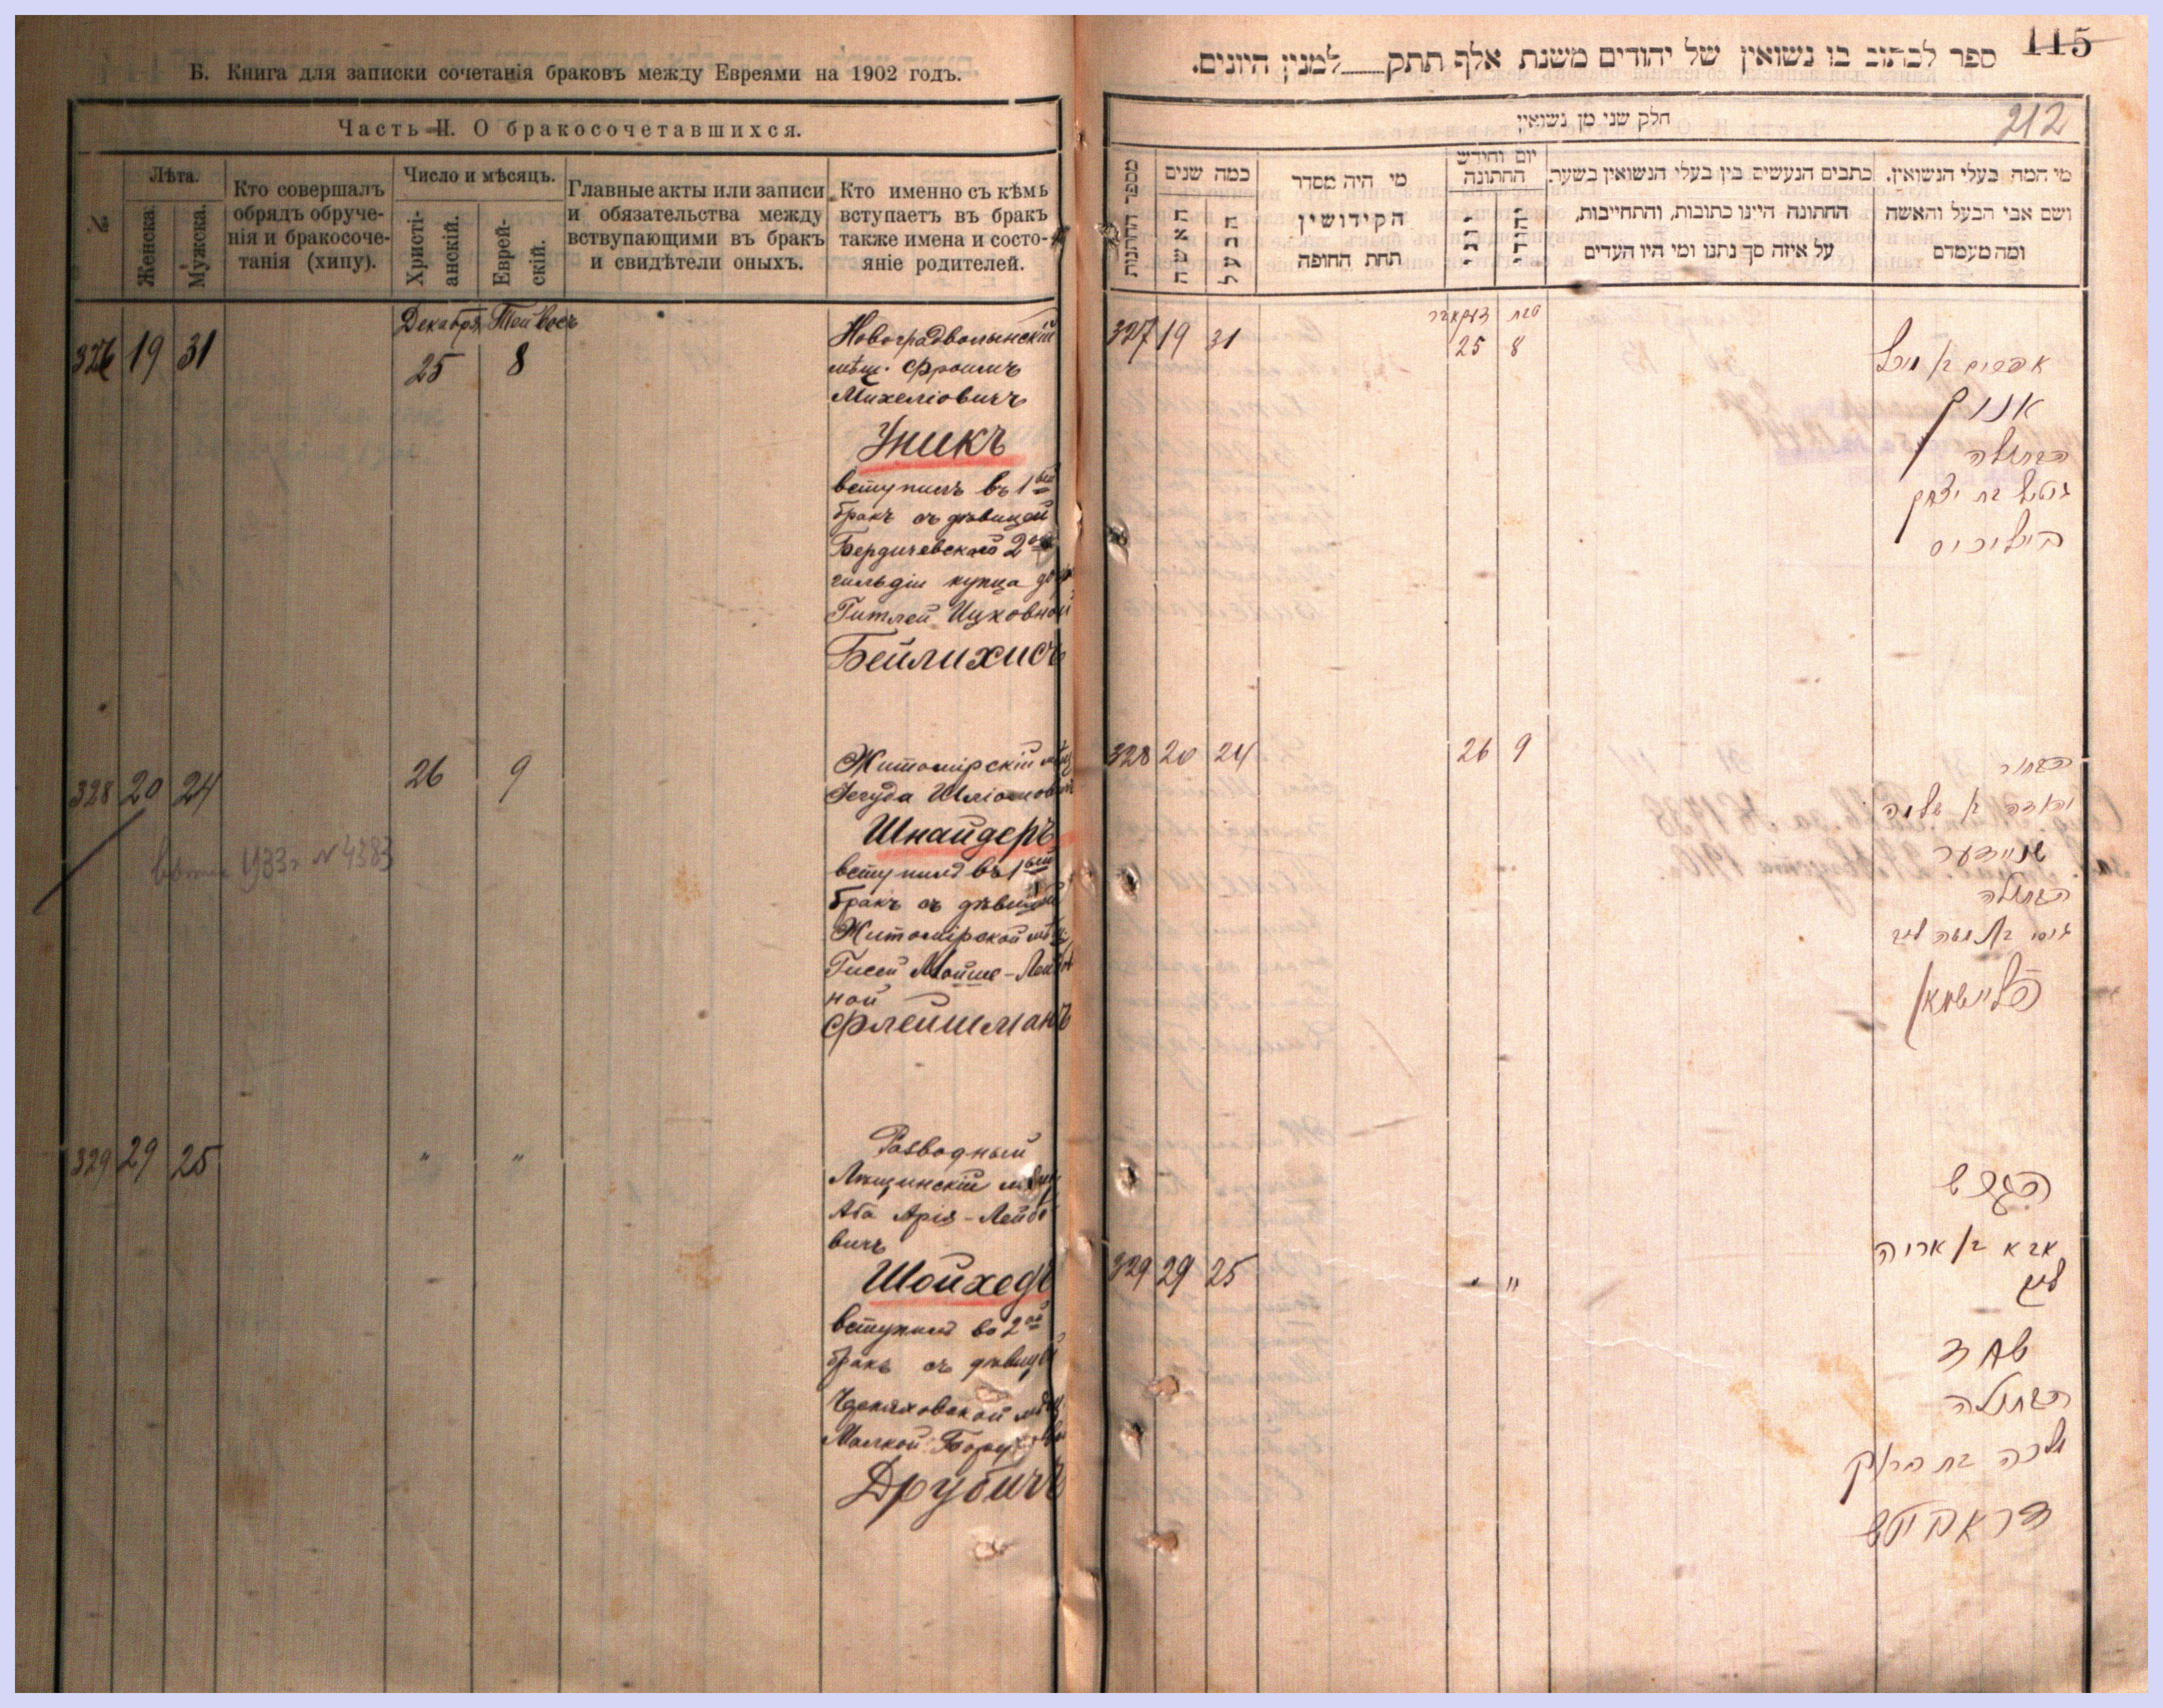 Б. Книга для записки сочетанія браковъ между Евреями на 1902 годъ.
Часть II. О бракосочетавшихся.
№
Лѣта.
Женска.
Мужска.
Кто совершалъ
обрядъ обруче-
нія и бракосоче-
танія (хипу).
Число и мѣсяцъ.
Христі-
анскій.
Еврей-
скій.
Главные акты или записи
и обязательства между
вствупающими въ бракъ
и свидѣтели оныхъ.
Кто именно съ кѣмъ
вступаетъ въ бракъ
также имена и состо-
яніе родителей.
Декабря Тейвесъ
19 31 25 8
Новоградволынскій
мѣщ. Фроимъ
Михеліовичъ
Уникъ
вступилъ въ 1ый
бракъ съ дѣвицей
Бердичевскаго 2ой
гильдіи купца
Гитлей Ицковной
Бейлихисъ
328 20 24 26 9
1933 г N 4383
Житомірскій мѣщ
Іегуда
Шнайдеръ
вступилъ въ 1ый
бракъ съ дѣвицей
Житомірской мѣщ
Гисей Мойше-Лейбов
ной
Флейшманъ
329 29 25 " "
Разводный
Лещинскій мѣщ
Аба Арія-Лейбо
вичъ
Шойхедъ
вступилъ во 2ой
бракъ съ дѣвицей
Черняховской мѣщ
Малкой
Друбичъ
115
ספר לכתוב בו נשואין של יהודים משנת אלף תתק למנין היונים.
212
חלק שני מן נשואין
מספר החתנות
כמה שנים
האשה
הבעל
מי היה מסדר
הקידושין
תחת החופה
יום וחודש
החתונה
יוני
יהודי
כתבים הנעשים בין בעלי הנשואין בשעת
החתונה היינו כתובות, והתחייבות,
על איזה סך נתנו ומי היו העדים
מי המה בעלי הנשואין,
ושם אבי הבעל והאשה
ומה מעמדם
דעקאבר טבת
327 19 31 25 8
אפרים בן מיכל
אוניק
הבתולה
גיטל בת יצחק
ביילוכיס
328 20 24 26 9
הבחור
יהודה בן שלמה
שניידער
הבתולה
גיסי בת משה ליב
פליישמאן
הגרוש
אבא בן אריה
ליב
329 29 25 " "
שחד
הבתולה
מלכה בת ברוך
דראביטש